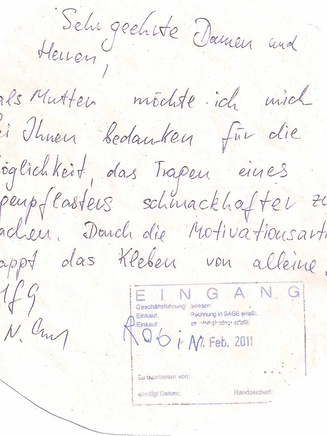 Sehr geehrte Damen und
Herren,
als Mutter möchte ich mich
ei Ihnen bedanken für die
öglichkeit, das Tragen eines
genpflasters schmackhafter zu
achen. Durch die Motivationsart
appt das Kleben von alleine.
MfG
EINGANG
Geschäftsführung gelesen:
Einkauf: Rechnung in SAGE erfaßt:
Einkauf:
Robin
Feb. 2011
Zu bearbeiten von:
erledigt Datum: Handzeichen: